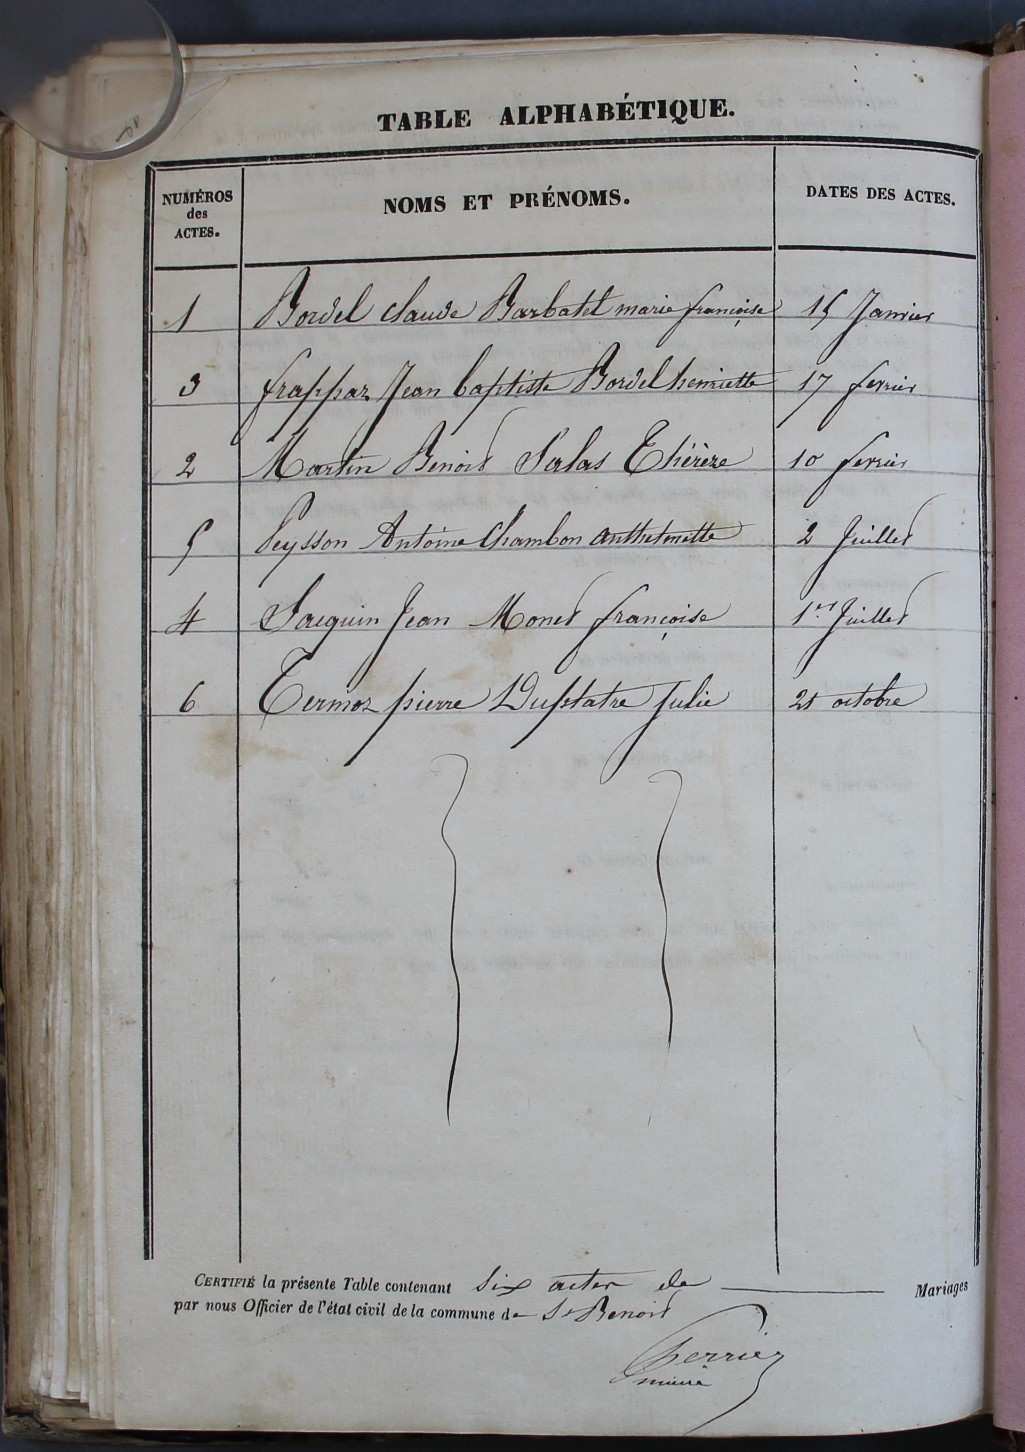 TABLE ALPHABÉTIQUE.
NUMÉROS des ACTES. NOMS ET PRÉNOMS. DATES DES ACTES.
1 Bordel claude Barbatel marie françoise 15 Janvier
3 frappaz Jean baptiste Bordel henriette 17 fevrier
2 Martin Benoid Salas Thérèze 10 fevrier
5 Peysson Antoine Chambon 2 Juilled
4 Jacquin Jean Moned françoise 1er Juilled
6 Termoz pierre Julie octobre
CERTIFIÉ la présente Table contenant six actes de Mariages
par nous Officier de l'état civil de la commune de St Benoid